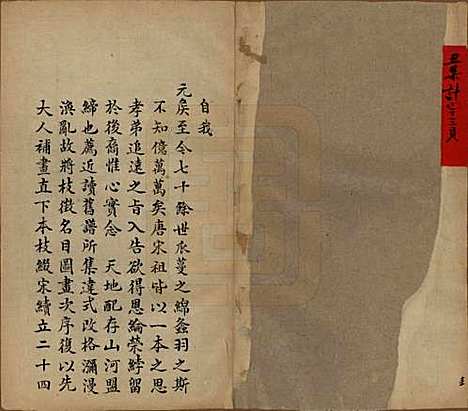 丑集計七十三頁
自我
元矦至今七十餘世瓜蔓之綿螽羽之斯
不知億萬萬矣唐宋祖皆以一本之思
孝弟追遠之旨入告欲得恩綸榮綍留
於後裔惟心實念　天地配存山河盟
締也薦近讀舊譜所集違式改格瀰漫
渙亂故將枝徵名目圖畫次序復以先
大人補畫直下本枝綴宋續立二十四